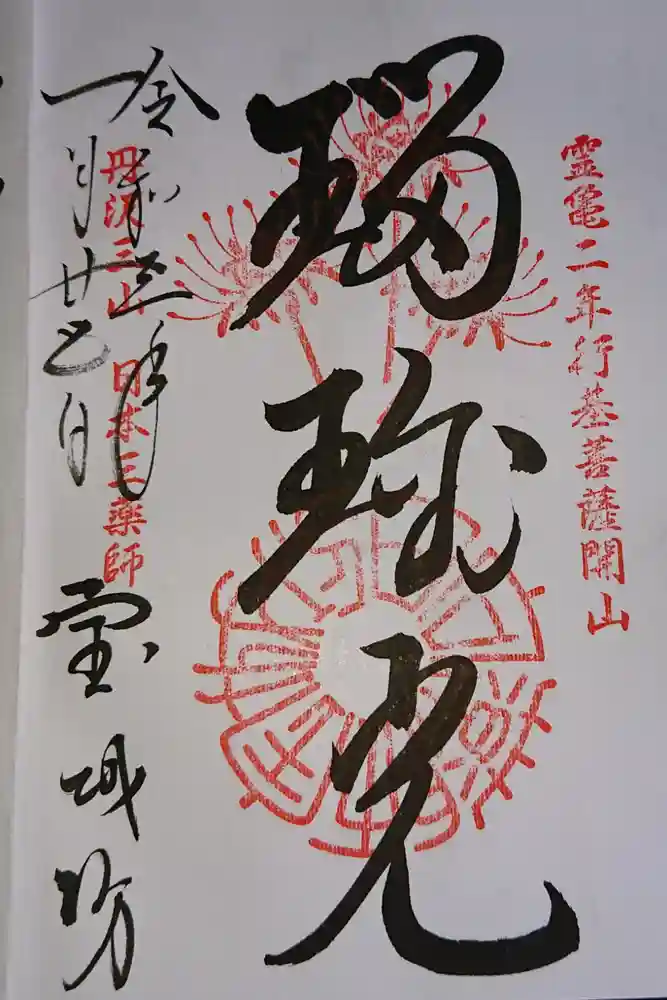 霊亀二年行基菩薩開山
瑠璃光
丹沢三山 日本三薬師
令和 年
一月廿 日
宝城坊